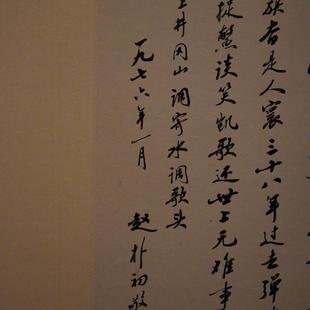 奋是人寰三十八年过去弹
捉鳖谈笑凯歌还世上无难事
上井冈山 调寄水调歌头
一九七六年一月 赵朴初敬